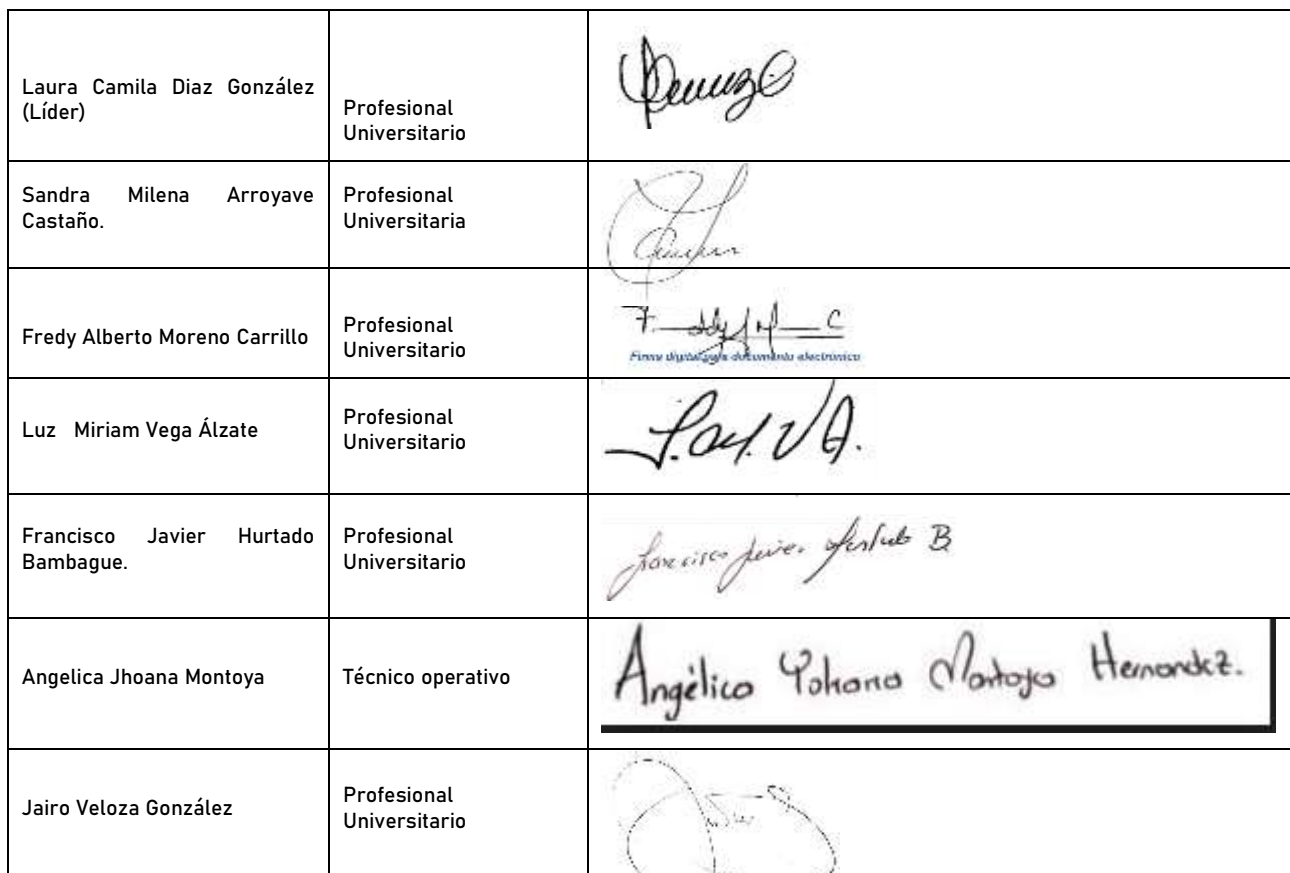 Laura Camila Diaz González
(Líder)
Profesional
Universitario
Sandra Milena Arroyave
Castaño.
Profesional
Universitaria
Fredy Alberto Moreno Carrillo
Profesional
Universitario
Firma digital para documento electrónico
Luz Miriam Vega Álzate
Profesional
Universitario
L.M.V.A.
Francisco Javier Hurtado
Bambague.
Profesional
Universitario
Francisco Javier Hurtado B
Angelica Jhoana Montoya
Técnico operativo
Angélica Yohana Montoya Hernandez.
Jairo Veloza González
Profesional
Universitario